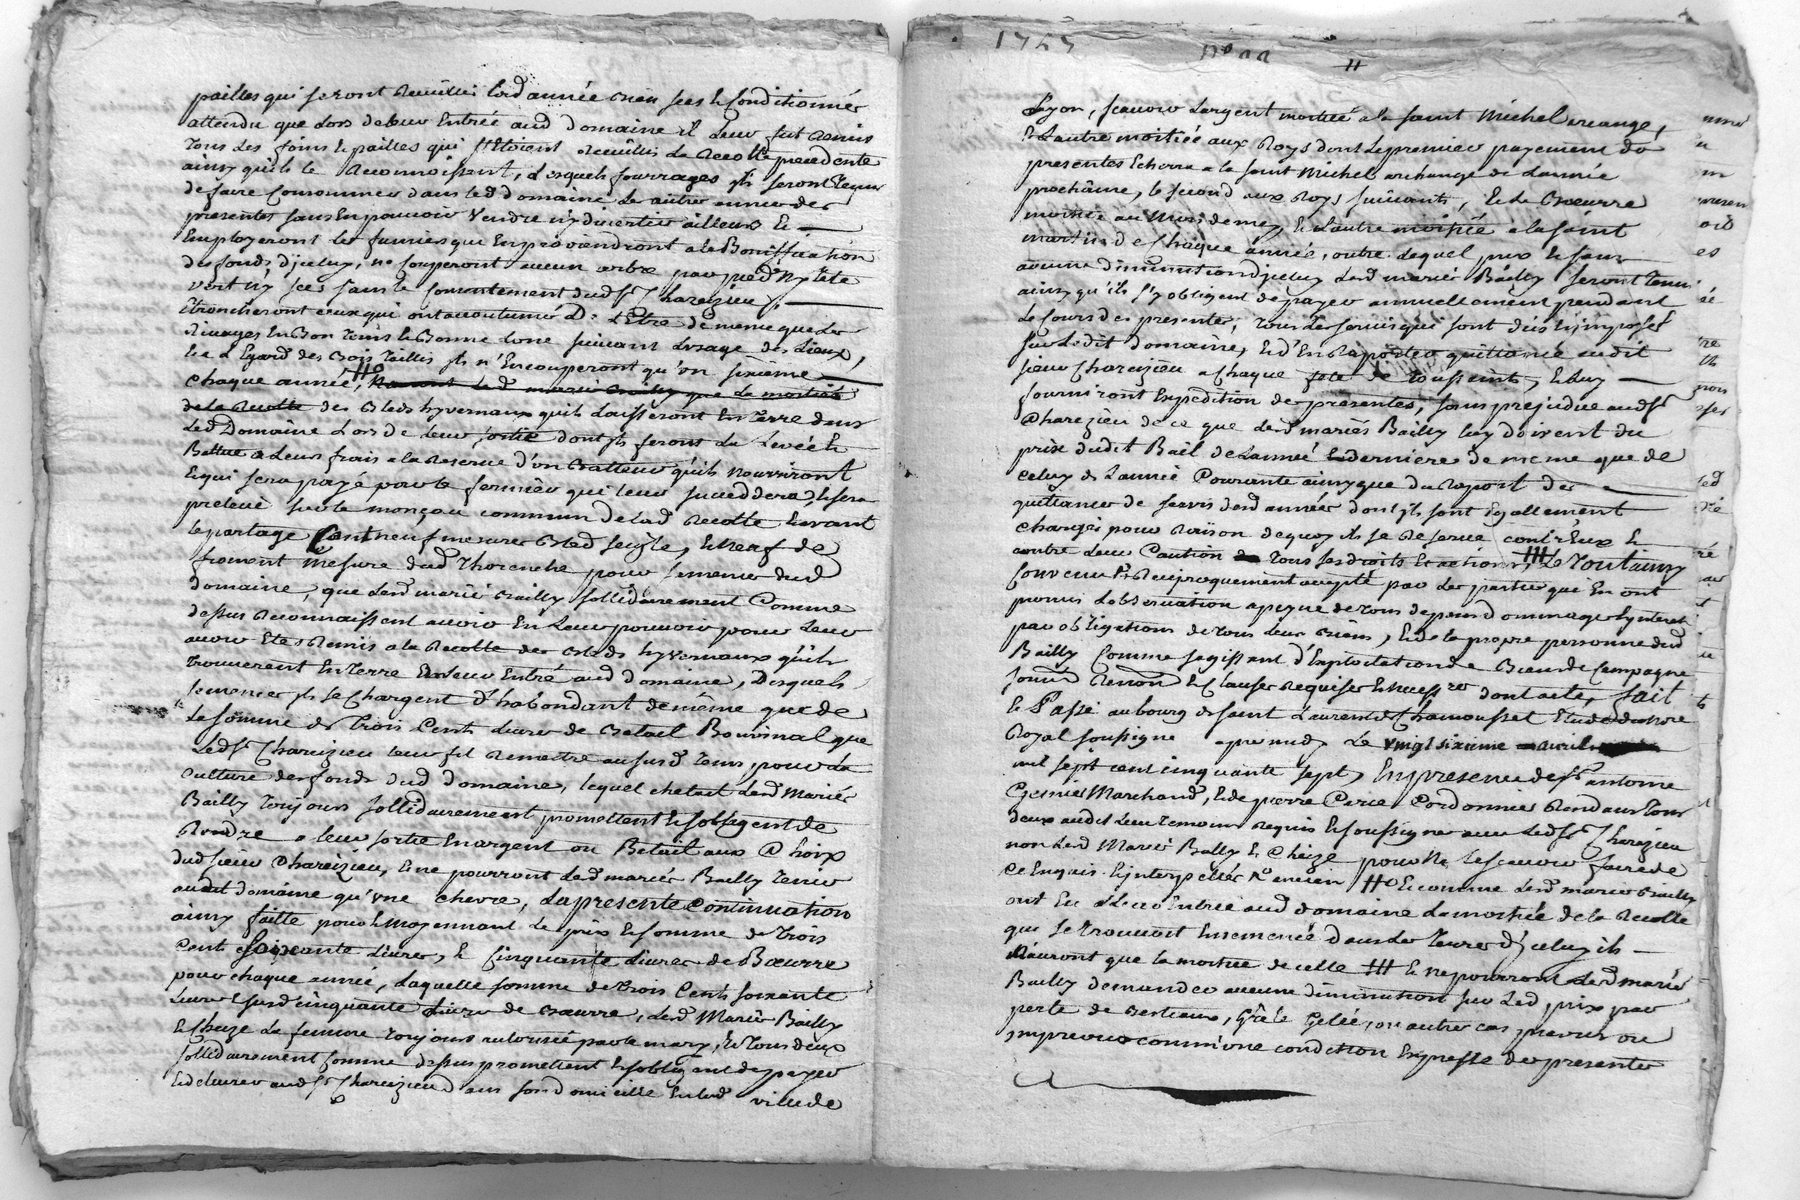 pailles qui seront Receüillis lad année bien secs & Conditionnés
attendu que Lors de leur Entrée aud Domaine il Leur fut Remis
tous les foins & pailles qui s'Etoient Receüillis La Recolte precedente
ainsy quils le Reconnoissent, desquels fourrages ils seront tenus
de faire Consommer dans led domaine Le autre année des
presentes sans En pouvoir Vendre ny divertir ailleurs &
Employeront les fumiers qui En proviendront a la Boniffication
des fonds d'jceluy, ne Couperont aucun arbre par pied Ny tete
Vert ny secs sans le Consentement dud Sr Chareizieu,
Ebrancheront ceux qui ont accoutumé de L'Etre de meme que Les
Rivages En Bon tems & Bonne Lune suivant L'usage des Lieux,
& a L'Egard des Bois taillis ils n'En couperont qu'un sixieme
chaque année, # Nauront Led mariés Bailly que La moitié
de la Recolte des Bleds hyvernaux quils Laisseront En terre dans
Led Domaine Lors de Leur sortie dont ils feront La Levée &
Battue a Leurs frais a la Reserve d'un Batteur qu'ils Nourriront
& qui sera payé par le fermier qui leur succedera, & sera
prelevé sur le monçau commun de lad Recolte & avant
le partage Cent neuf mesures Bled seigle, & Neuf de
froment mesure dud Thorenche pour semence dud
domaine, que Lesd mariés Bailly sollidairement Comme
dessus Reconnaissent avoir En Leur pouvoir pour Leur
avoir Eté Remis a la Recolte des Bleds hyvernaux quils
trouverent En terre a Leur Entré aud domaine, Desquels
semences ils se Chargent D'habondant de même que de
La somme de Trois Cents Livres de Betail Bourinal que
Led Sr Chareizieu leur fit Remettre au susd tems, pour La
Culture des fonds dud domaine, lequel chetail Lesd Mariés
Bailly toujours sollidairement promettent & s'obligent de
Rendre a leur sortie En argent ou Betail aux Choix
dud sieur Chareizieu, & ne pourront Lesd mariés Bailly tenir
audit domaine qu'une chevre, La presente Continuation
ainsy faitte pour & Moyennant Le prix & somme de Trois
Cents Soixante Livres, & Cinquante Livres de Bœurre
pour chaque année, Laquelle somme de trois Cents soixante
Livres & susd cinquante Livres de Bœurre, Lesd Mariés Bailly
& Chize La femme toujours autorisée par le mary, & tous deux
sollidairement Comme dessus promettent & s'obligent de payer
& delivrer aud Sr Chareizieu dans son domicille En lad ville de
1757
Lyon, scavoir L'argent moitié a la saint Michel arcange,
& L'autre moitié aux Roys dont Le premier payement des
presentes Echerra a la saint Michel archange de L'année
prochaine, le second aux Roys suivants, & le Bœurre
moitié au Mois de may, & L'autre moitié a la saint
martin de Chaque année, outre Lequel prix & sans
aucune diminution d'jceluy Lesd mariés Bailly seront tenus
ainsy qu'ils s'y obligent de payer annuellement pendant
Le Cours des presentes, tous Les servis qui sont dus & imposés
sur Ledit domaine, & d'En Raporter quittance audit
sieur Chareizieu a Chaque fete de toussaints, & luy
fourniront Expedition des presentes, sans prejudice aud Sr
Chareizieu de ce que Lesd mariés Bailly luy doivent du
prix dudit Bail de L'année derniere de meme que de
Celuy de L'année Courante ainsy que du Raport des
quittances de servis desd années dont ils sont Egallement
Chargés pour Raison de quoy il se Reserve contr'Eux &
contre Leur Caution tous ses droits & actions, #| Le tout ainsy
Convenu & Reciproquement accepté par Les parties qui En ont
promis L'observation a peyne de tous depens dommages & interets
par obligations de tous Leurs Biens, & de la propre personne dud
Bailly Comme sagissant d'Exploitation de Biens de Campagne
soumis Renon & Clauses Requises & necessres dont acte, fait
& Passé au bourg de saint Laurent de Chamousset Etude du Nore
Royal soussigné apres midy Le vingt sixieme avril
mil sept cent cinquante sept, En presence de Sr antoine
Gernier Marchand, & de pierre Perce Cordonnier Residans tous
deux audit Lieu temoins Requis & soussignés avec Led Sr Chareizieu
non Lesd Mariés Bailly & Chize pour ne le sçavoir faire de
ce Enquis & interpellés # & comme Lesd mariés Bailly
ont Eu a Leur Entrée aud domaine La moitié de la Recolte
qui se trouvoit Ensemencé dans Les terres d'jceluy ils
N'auront que la moitié de celle #| & ne pourront Lesd mariés
Bailly demander aucune diminution sur Led prix par
perte de Bestiaux, Grêle Gelée, ou autres cas prevus ou
imprevus comm'une condition Expresse des presentes